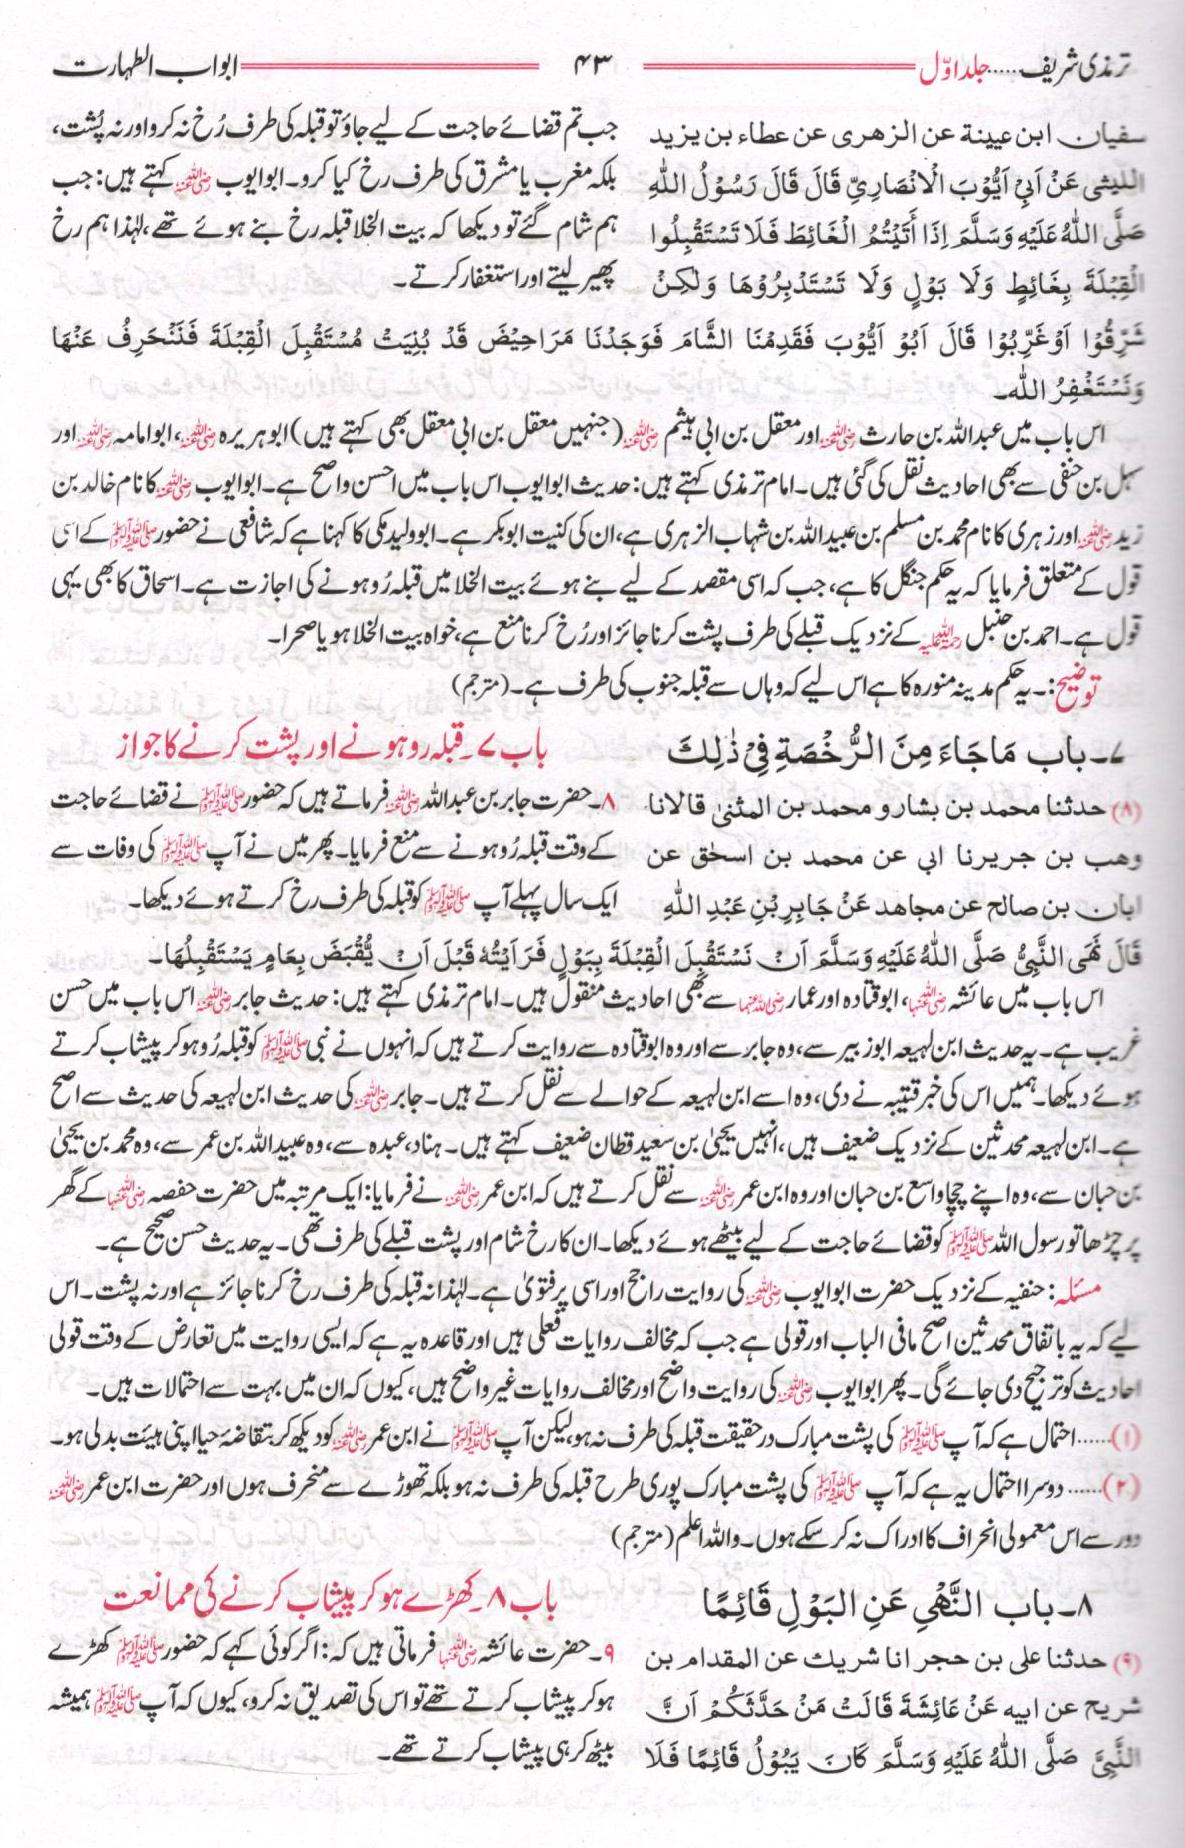 ترمذی شریف......جلد اوّل ۴۳ ابواب الطہارت
سفیان ابن عیینة عن الزهری عن عطاء بن یزید
اللیثی عَنْ اَبِیْ اَیُّوْبَ الْاَنْصَارِیِّ قَالَ قَالَ رَسُوْلُ اللّٰهِ
صَلَّی اللّٰهُ عَلَیْهِ وَسَلَّمَ اِذَا أَتَیْتُمُ الْغَائِطَ فَلَا تَسْتَقْبِلُوا
الْقِبْلَةَ بِغَائِطٍ وَلَا بَوْلٍ وَلَا تَسْتَدْبِرُوْهَا وَلٰکِنْ
شَرِّقُوْا اَوْ غَرِّبُوْا قَالَ اَبُوْ اَیُّوْبَ فَقَدِمْنَا الشَّامَ فَوَجَدْنَا مَرَاحِیْضَ قَدْ بُنِیَتْ مُسْتَقْبِلَ الْقِبْلَةَ فَنَنْحَرِفُ عَنْهَا
وَنَسْتَغْفِرُ اللّٰه۔
جب تم قضائے حاجت کے لیے جاؤ تو قبلہ کی طرف رُخ نہ کرو اور نہ پُشت،
بلکہ مغرب یا مشرق کی طرف رخ کیا کرو۔ ابوایوب رضی اللہ عنہ کہتے ہیں: جب
ہم شام گئے تو دیکھا کہ بیت الخلا قبلہ رخ بنے ہوئے تھے، لہٰذا ہم رخ
پھیر لیتے اور استغفار کرتے۔
اس باب میں عبداللہ بن حارث رضی اللہ عنہ اور معقل بن ابی ہیثم رضی اللہ عنہ (جنہیں معقل بن ابی معقل بھی کہتے ہیں) ابوہریرہ رضی اللہ عنہ، ابوامامہ رضی اللہ عنہ اور
سہل بن حنفی سے بھی احادیث نقل کی گئی ہیں۔ امام ترمذی کہتے ہیں: حدیث ابوایوب اس باب میں احسن واضح ہے۔ ابوایوب رضی اللہ عنہ کا نام خالد بن
زید رضی اللہ عنہ اور زہری کا نام محمد بن مسلم بن عبیداللہ بن شہاب الزہری ہے، ان کی کنیت ابوبکر ہے۔ ابوولید مکی کا کہنا ہے کہ شافعی نے حضور صلی اللہ علیہ وسلم کے اسی
قول کے متعلق فرمایا کہ یہ حکم جنگل کا ہے، جب کہ اسی مقصد کے لیے بنے ہوئے بیت الخلا میں قبلہ رُو ہونے کی اجازت ہے۔ اسحاق کا بھی یہی
قول ہے۔ احمد بن حنبل رحمۃ اللہ علیہ کے نزدیک قبلے کی طرف پشت کرنا جائز اور رُخ کرنا منع ہے، خواہ بیت الخلا ہو یا صحرا۔
توضیح:۔ یہ حکم مدینہ منورہ کا ہے اس لیے کہ وہاں سے قبلہ جنوب کی طرف ہے۔ (مترجم)
۷۔ باب مَاجَاءَ مِنَ الرُّخْصَةِ فِیْ ذٰلِكَ
باب ۷۔ قبلہ رو ہونے اور پشت کرنے کا جواز
(۸) حدثنا محمد بن بشار و محمد بن المثنیٰ قالانا
وهب بن جریرنا ابی عن محمد بن اسحٰق عن
ابان بن صالح عن مجاهد عَنْ جَابِرِ بْنِ عَبْدِ اللّٰهِ
قَالَ نَهَی النَّبِیُّ صَلَّی اللّٰهُ عَلَیْهِ وَسَلَّمَ اَنْ نَسْتَقْبِلَ الْقِبْلَةَ بِبَوْلٍ فَرَاَیْتُهٗ قَبْلَ اَنْ یُّقْبَضَ بِعَامٍ یَسْتَقْبِلُهَا۔
۸۔ حضرت جابر بن عبداللہ رضی اللہ عنہ فرماتے ہیں کہ حضور صلی اللہ علیہ وسلم نے قضائے حاجت
کے وقت قبلہ رُو ہونے سے منع فرمایا۔ پھر میں نے آپ صلی اللہ علیہ وسلم کی وفات سے
ایک سال پہلے آپ صلی اللہ علیہ وسلم کو قبلہ کی طرف رخ کرتے ہوئے دیکھا۔
اس باب میں عائشہ رضی اللہ عنہا، ابوقتادہ اور عمار رضی اللہ عنہما سے بھی احادیث منقول ہیں۔ امام ترمذی کہتے ہیں: حدیث جابر رضی اللہ عنہ اس باب میں حسن
غریب ہے۔ یہ حدیث ابن لہیعہ ابوزبیر سے، وہ جابر سے اور وہ ابوقتادہ سے روایت کرتے ہیں کہ انہوں نے نبی صلی اللہ علیہ وسلم کو قبلہ رُو ہوکر پیشاب کرتے
ہوئے دیکھا۔ ہمیں اس کی خبر قتیبہ نے دی، وہ اسے ابن لہیعہ کے حوالے سے نقل کرتے ہیں۔ جابر رضی اللہ عنہ کی حدیث ابن لہیعہ کی حدیث سے اصح
ہے۔ ابن لہیعہ محدثین کے نزدیک ضعیف ہیں، انہیں یحییٰ بن سعید قطان ضعیف کہتے ہیں۔ ہناد، عبدہ سے، وہ عبیداللہ بن عمر سے، وہ محمد بن یحییٰ
بن حبان سے، وہ اپنے چچا واسع بن حبان اور وہ ابن عمر رضی اللہ عنہ سے نقل کرتے ہیں کہ ابن عمر رضی اللہ عنہ نے فرمایا: ایک مرتبہ میں حضرت حفصہ رضی اللہ عنہا کے گھر
پر چڑھا تو رسول اللہ صلی اللہ علیہ وسلم کو قضائے حاجت کے لیے بیٹھے ہوئے دیکھا۔ ان کا رخ شام اور پشت قبلے کی طرف تھی۔ یہ حدیث حسن صحیح ہے۔
مسئلہ: حنفیہ کے نزدیک حضرت ابوایوب رضی اللہ عنہ کی روایت راجح اور اسی پر فتویٰ ہے۔ لہٰذا نہ قبلہ کی طرف رخ کرنا جائز ہے اور نہ پشت۔ اس
لیے کہ یہ باتفاق محدثین اصح مافی الباب اور قولی ہے جب کہ مخالف روایات فعلی ہیں اور قاعدہ یہ ہے کہ ایسی روایت میں تعارض کے وقت قولی
احادیث کو ترجیح دی جائے گی۔ پھر ابوایوب رضی اللہ عنہ کی روایت واضح اور مخالف روایات غیر واضح ہیں، کیوں کہ ان میں بہت سے احتمالات ہیں۔
(۱)...... احتمال ہے کہ آپ صلی اللہ علیہ وسلم کی پشت مبارک درحقیقت قبلہ کی طرف نہ ہو، لیکن آپ صلی اللہ علیہ وسلم نے ابن عمر رضی اللہ عنہ کو دیکھ کر بتقاضۂ حیا اپنی ہیئت بدلی ہو۔
(۲)...... دوسرا احتمال یہ ہے کہ آپ صلی اللہ علیہ وسلم کی پشت مبارک پوری طرح قبلہ کی طرف نہ ہو بلکہ تھوڑے سے منحرف ہوں اور حضرت ابن عمر رضی اللہ عنہ
دور سے اس معمولی انحراف کا ادراک نہ کرسکے ہوں۔ واللہ اعلم (مترجم)
۸۔ باب النَّهْیِ عَنِ البَوْلِ قَائِمًا
باب ۸۔ کھڑے ہوکر پیشاب کرنے کی ممانعت
(۹) حدثنا علی بن حجر انا شریك عن المقدام بن
شریح عن ابیه عَنْ عَائِشَةَ قَالَتْ مَنْ حَدَّثَکُمْ اَنَّ
النَّبِیَّ صَلَّی اللّٰهُ عَلَیْهِ وَسَلَّمَ کَانَ یَبُوْلُ قَائِمًا فَلَا
۹۔ حضرت عائشہ رضی اللہ عنہا فرماتی ہیں کہ: اگر کوئی کہے کہ حضور صلی اللہ علیہ وسلم کھڑے
ہوکر پیشاب کرتے تھے تو اس کی تصدیق نہ کرو، کیوں کہ آپ صلی اللہ علیہ وسلم ہمیشہ
بیٹھ کر ہی پیشاب کرتے تھے۔